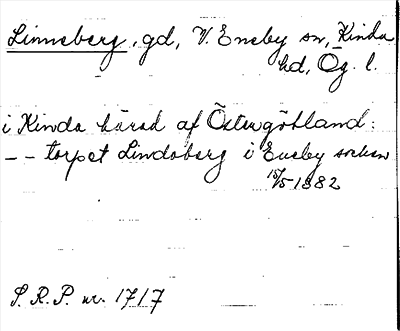 Linneberg, gd, V. Eneby sn, Kinda
hd, Ög. l.
i Kinda härad af Östergötland:
-- torpet Lindsberg i Eneby socken
15/5 1882
S. R. P. nr. 1717